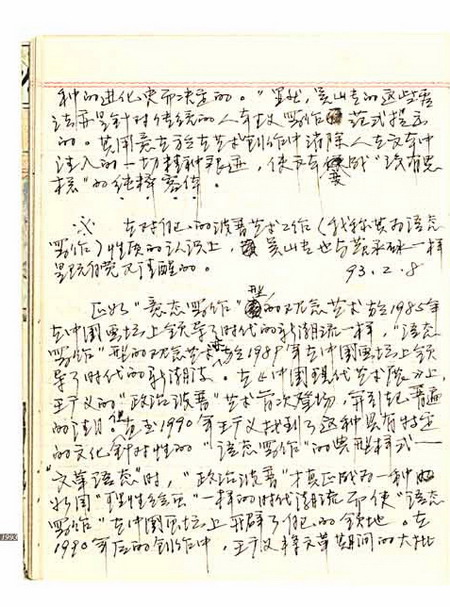 种的进化史而决定的。"显然,吴山专的这些看
法再是针对传统的人本主义写作 范式提出
的。其用意在于在艺术创作中清除人在文本中
注入的一切精神痕迹,使文本 成"没有忠
的纯粹 。
在对他 的波普艺术工作(我称其为语态
写作)性质的认识上, 吴山专也与 一样
是既自觉又清醒的。 93.2.8
正如"意态写作"型的观念艺术于1985年
在中国画坛上领导了时代的新潮流一样,"语态
写作"型的观念艺术 于1989年在中国画坛上领
导了时代的新潮流。在《中国现代艺术展》上
王广义的"政治波普"艺术首次登场,并引起普遍
的注目。但直至1990年王广义找到了这种具有特定
的文化针对性的"语态写作"的典型样式——
"文革语态"时,"政治波普"才真正成为一种如
"理性绘画"一样的时代潮流而使"语态
写作"在中国画坛上开辟了他 的领地。在
1990年后的创作中,王广义将文革期间的大批
1993